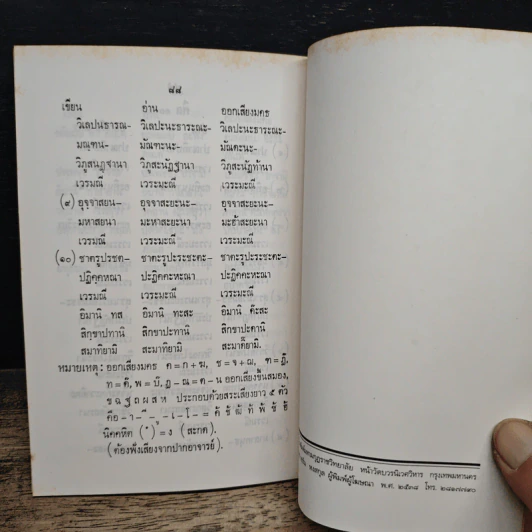 ๘๘
เขียน อ่าน ออกเสียงมคธ
วิเลปนธารณ- วิเลปะนะธาระณะ- วิเลปะนะธาระณะ-
มณฺฑน- มัณฑะนะ- มัณฑะนะ-
วิภูสนฏฺฐานา วิภูสะนัฏฐานา วิภูสะนัฏฐานา
เวรมณี เวระมะณี เวระมะณี
(๙) อุจฺจาสยน- อุจจาสะยะนะ- อุจจาสะยะนะ-
มหาสยนา มะหาสะยะนา มะฮ้าสะยะนา
เวรมณี เวระมะณี เวระมะณี
(๑๐) ชาตรูปรชต- ชาตะรูปะระชะตะ- ชาตะรูปะระชะตะ-
ปฏิคฺคหณา ปะฏิคคะหะณา ปะฏิคคะหะณา
เวรมณี เวระมะณี เวระมะณี
อิมานิ ทส อิมานิ ทะสะ อิมานิ ด๊ะสะ
สิกฺขาปทานิ สิกขาปะทานิ สิกขาปะดานิ
สมาทิยามิ สะมาทิยามิ สะมาดิยามิ.
หมายเหตุ : ออกเสียงมคธ
ออกเสียงขึ้นสมอง,
ข ฉ ฐ ถ ผ ส ห ประกอบด้วยสระเสียงยาว ๕ ตัว
นิคคหิต = ง (สะกด).
(ต้องฟังเสียงจากปากอาจารย์).
มหามกุฏราชวิทยาลัย หน้าวัดบวรนิเวศวิหาร กรุงเทพมหานคร
ผู้พิมพ์ผู้โฆษณา พ.ศ. ๒๕๓๘ โทร. ๒๘๑๗๗๑๐